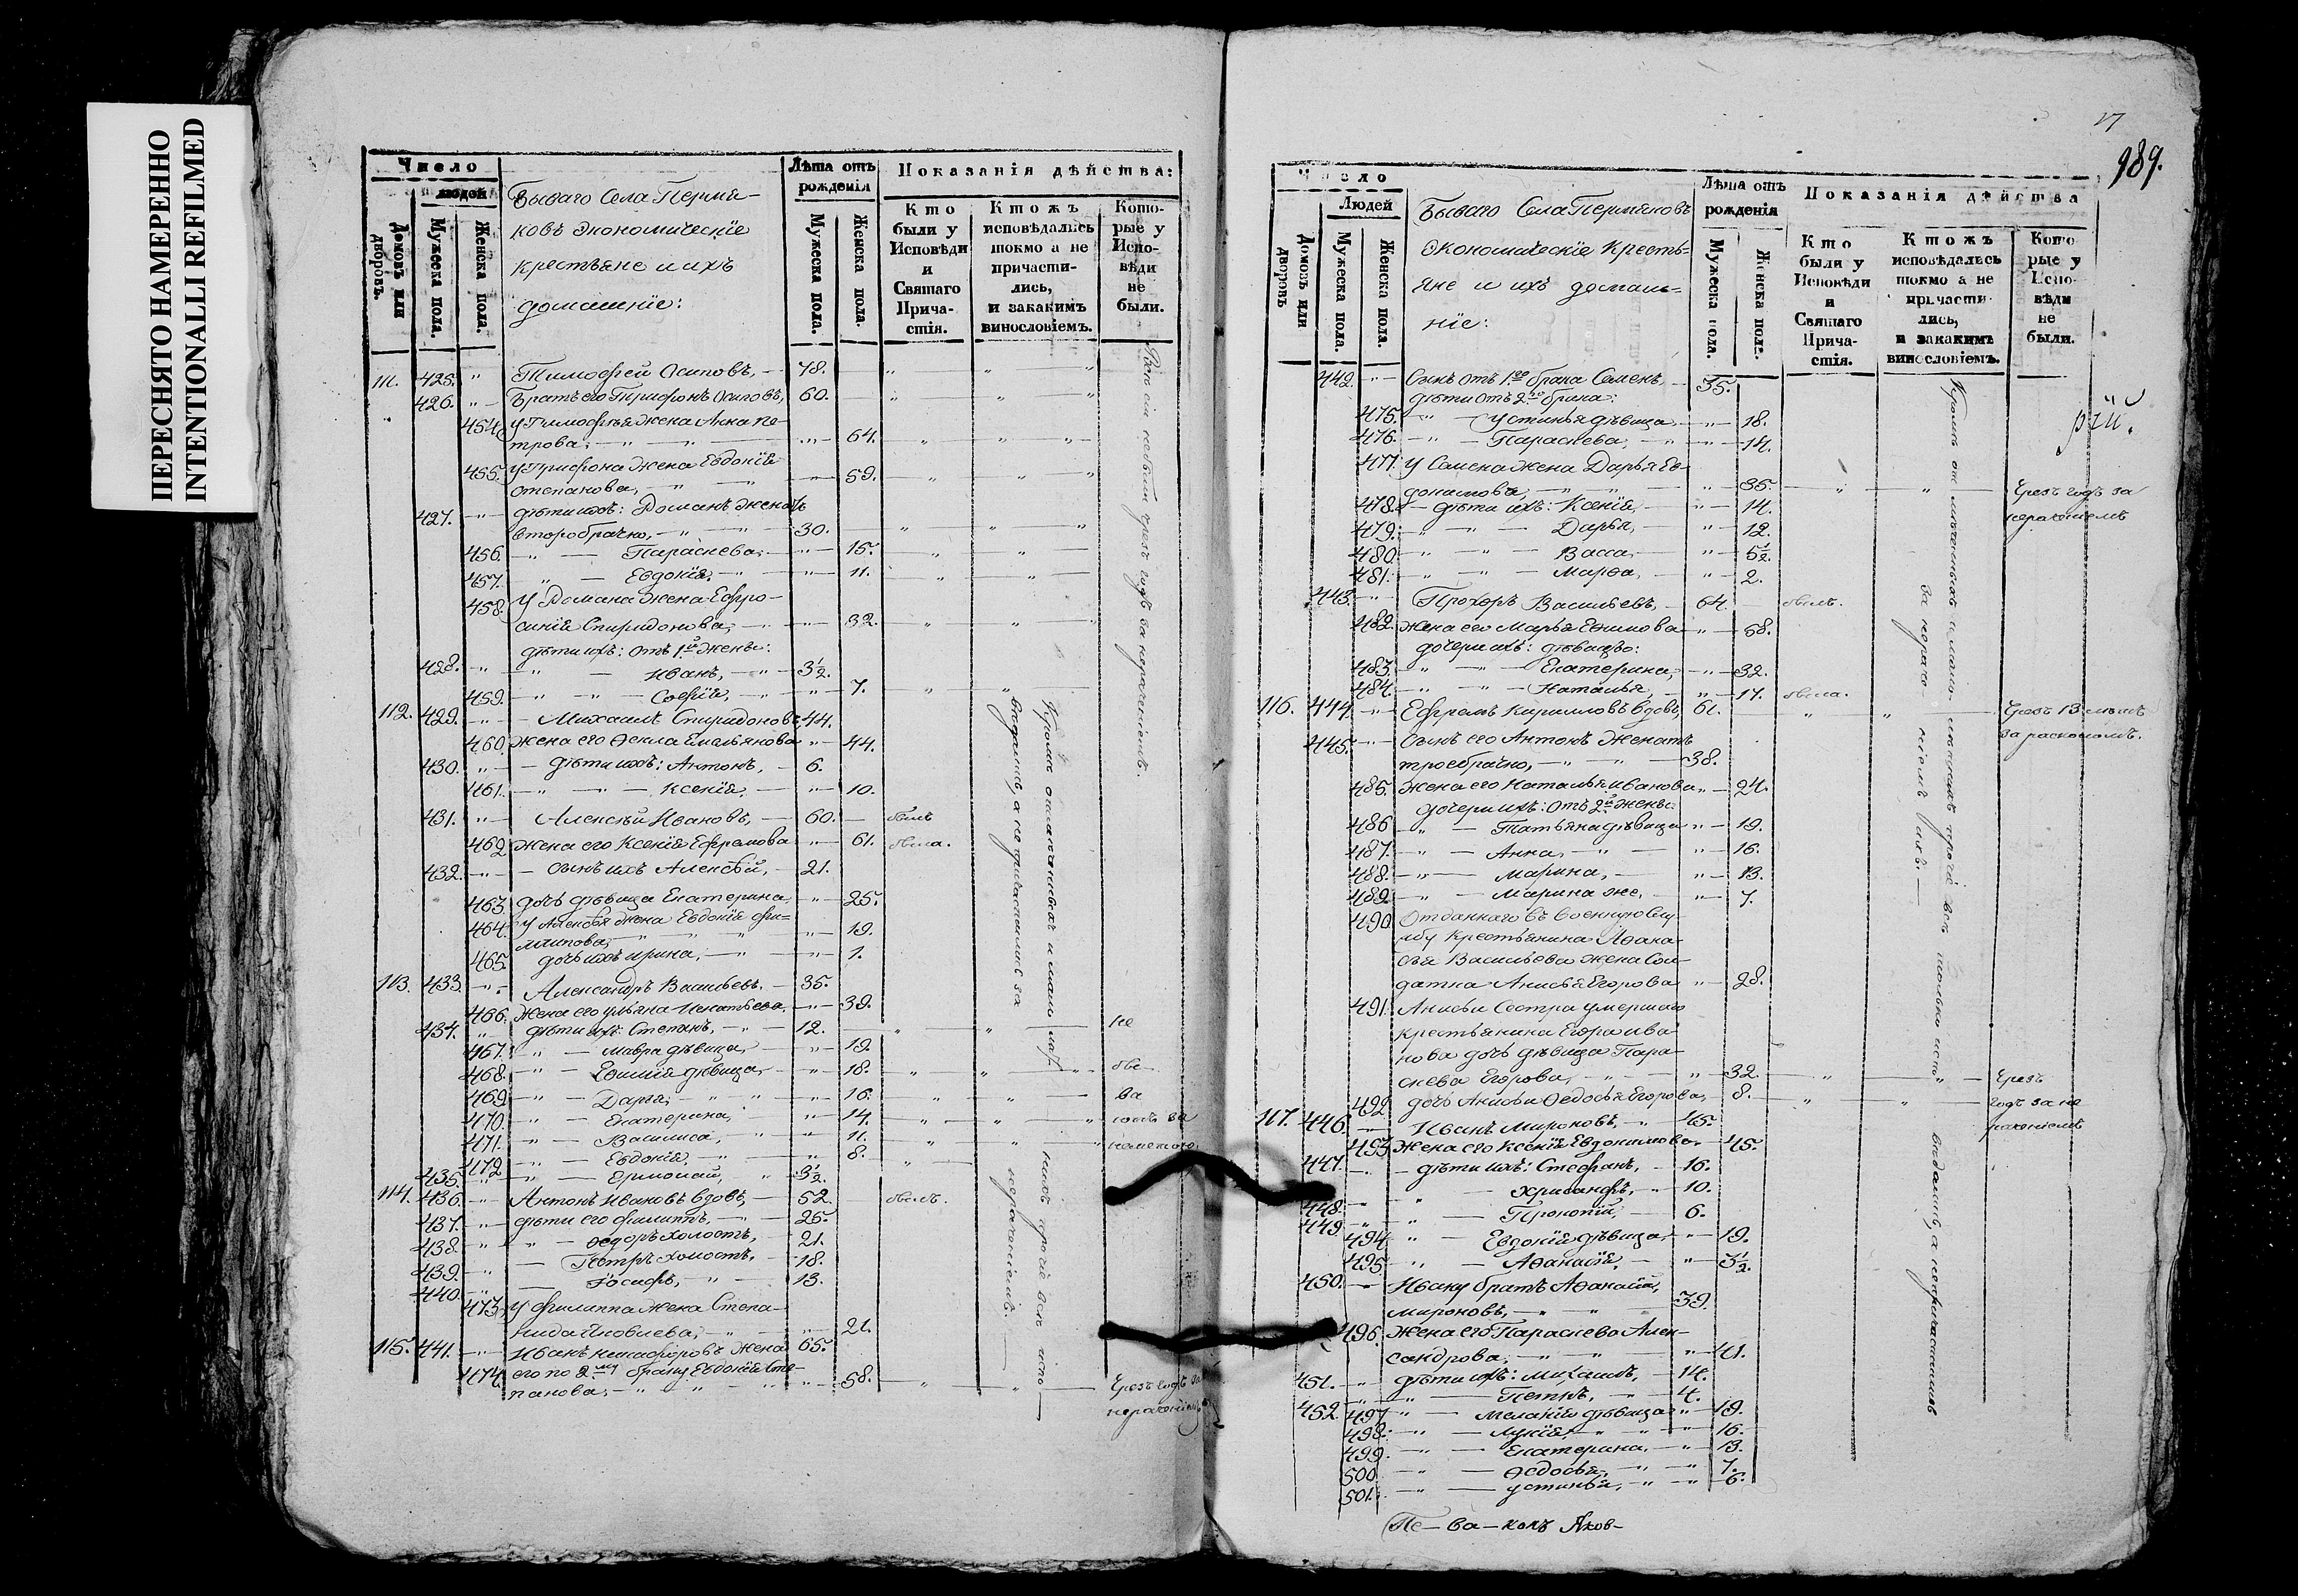 ПЕРЕСНЯТО НАМЕРЕННО
INTENTIONALLI REFILMED
Число
людей
Домовъ или дворовъ.
Мужеска пола.
Женска пола.
Бываго Села Пермя-
ковъ экономическіе
крестьяне и ихъ
домашніе:
Лѣта отъ рожденія
Мужеска пола.
Женска пола.
Показанія дѣйства:
Кто были у Исповѣди и Святаго Прича- стія.
Ктожъ исповѣдались токмо а не причасти- лись, и закакимъ винословіемъ.
Кото- рые у Испо- вѣди не были.
111. 425. " Тимофей Осиповъ, — 78. " " "
426. " — Братъ его Трифонъ Осиповъ, 60. " " "
454. У Тимофея жена Анна Пе-
трова, — " — " — 64. " " "
455. У Трифона жена Евдокія
Степанова, — " — 59. " " "
427. " — дѣти ихъ: Романъ женатъ
второбрачно, — " — 30. " " "
456. " — Параскева, — " — 15. " "
457. " — Евдокія, — " — 11. " "
458. У Романа жена Ефро-
синія Спиридонова, — " — 32. " " "
дѣти ихъ: отъ 1й жены:
428. " — " — Иванъ, — " 3½.
459. — " — " — Софія, — " — 7. " "
112. 429. " — Михаилъ Спиридоновъ 44.
460. жена его Фекла Емельянова " — 44.
430. " — дѣти ихъ: Антонъ, — 6.
461. — " — " — Ксенія, — " — 10.
431. " — Алексѣй Ивановъ, — 60. — былъ
462. жена его Ксенія Ефремова " — 61. была.
432. " — сынъ ихъ Алексѣй, — 21.
463. дочь дѣвица Екатерина, " — 25.
464. У Алексѣя жена Евдокія Фи-
липпова, — " — " — 19.
465. дочь ихъ Ирина, — " — 1.
113. 433. " — Александръ Васильевъ. — 35.
466. жена его Ульяна Игнатьева, — " — 39.
434. " дѣти ихъ: Степанъ, — " — 12. " " не
467. " — Мавра дѣвица, — " — 19.
468. " — Евфимія дѣвица, — " — 18. " " "
469. " — Дарья, — " — 16. " "
470. " — Екатерина, " — 14. " " "
471. " — Василиса, " — 11. " " "
472. " — Евдокія, — " — 8. "
435. " — Ермолай, " 3½.
114. 436. " — Антонъ Ивановъ вдовъ, — 52. былъ.
437. " — дѣти его Филиппъ, — " — 25.
438. " — " — Федоръ холостъ, — 21.
439. " — Петръ холостъ, — 18.
440. " — Іосифъ, — " — 13.
473. У Филиппа жена Степа-
нида Яковлева, — " — 21.
115. 441. " — Иванъ Никифоровъ жена 65.
474. его по 2му браку Евдокія Сте-
панова, — " " " — 58. " " Чрезъ годъ за
нераченіемъ
Всѣ сіи небыли чрезъ годъ за нераченіемъ.
Кромѣ отмѣченныхъ и мало лѣт нихъ прочіе всѣ испо
вѣдались, а не причастились за нераченіемъ.
17
989.
рги.
Число
Людей
Домовъ или дворовъ
Мужеска пола.
Женска пола.
Бываго Села Пермяковъ
экономическіе кресть-
яне и ихъ домаш-
ніе:
Лѣта отъ рожденія
Мужеска пола.
Женска пола.
Показанія дѣйства
Кто были у Исповѣди и Святаго Прича- стія.
Ктожъ исповѣдались токмо а не причасти- лись, и закакимъ винословіемъ.
Кото рые у Испо- вѣди не были.
442. " — Сынъ отъ 1го брака Семенъ, — 35.
дѣти отъ 2го брака:
475. " — Устинья дѣвица — " — 18.
476. " — Параскева, — " — 14.
477. У Семена жена Дарья Ев-
докимова, — " — " — 35. " " Чрезъ годъ за
нераченіемъ
478. — дѣти ихъ: Ксенія, — " — 14.
479. " — " — Дарья, — " — 12.
480. " — " — Васса, — " — 5½.
481. — " — " — Марѳа, — " — 2.
443. " — Прохоръ Васильевъ, — 64. — былъ.
482. жена его Марья Екимова — " — 58.
дочери ихъ: дѣвицы:
483. " — " — Екатерина, — " — 32.
484. — " — " — Наталья, — " — 17. была.
116. 444. " — Ефремъ Кириловъ вдовъ, 61. — " " Чрезъ 13 лѣтъ
за расколомъ.
445. " — сынъ его Антонъ женатъ
троебрачно, — " — " — 38.
485. жена его Наталья Иванова " — 24.
дочери ихъ: отъ 2й жены:
486. " — Татьяна дѣвица " — 19.
487. — " — Анна, — " — " — 16.
488. — " — Марина, — " — 13.
489. — " — Марина же, — " — 7.
490. Отданнаго въ военную слу-
жбу крестьянина Аѳана-
сья Васильева жена сол-
датка Анисья Егорова " — 28.
491. Анисьи сестра умершаго
крестьянина Егора Ива-
нова дочь дѣвица Пара-
скева Егорова, — " — 32. " " — Чрезъ
492. дочь Анисьи Ѳедосья Егорова, 8. " " — годъ за не
раченіемъ
117. 446. " — Иванъ Мироновъ, — " 45.
493. жена его Ксенія Евдокимова — 45.
447. " — дѣти ихъ: Стефанъ, — 16.
448. " — Хрисанфъ, — 10.
449. " — " — Прокопій, — 6.
494. " — Евдокія дѣвица, — " — 19.
495. " — Аѳанасія, — " — 3½.
450. — Ивану братъ Аѳанасій,
Мироновъ, — " — " — 39.
496. жена его Параскева Алек-
сандрова, — " — " — 41.
451. " — дѣти ихъ: Михаилъ, — 14.
452. " — Петръ, — " — 4.
497. " — Меланія дѣвица " — 19.
498. " — Лукія, " — " — 16.
499. — " — Екатерина, — " — 13.
500. — " — Ѳедосья, — " — 7.
501. — " — Устинья, — " — 6.
Кромѣ отмѣченныхъ и мало лѣтнихъ прочіе всѣ только испо вѣдались, а не причастились
за нерач ніемъ
Пе—ва—комъ Яков-